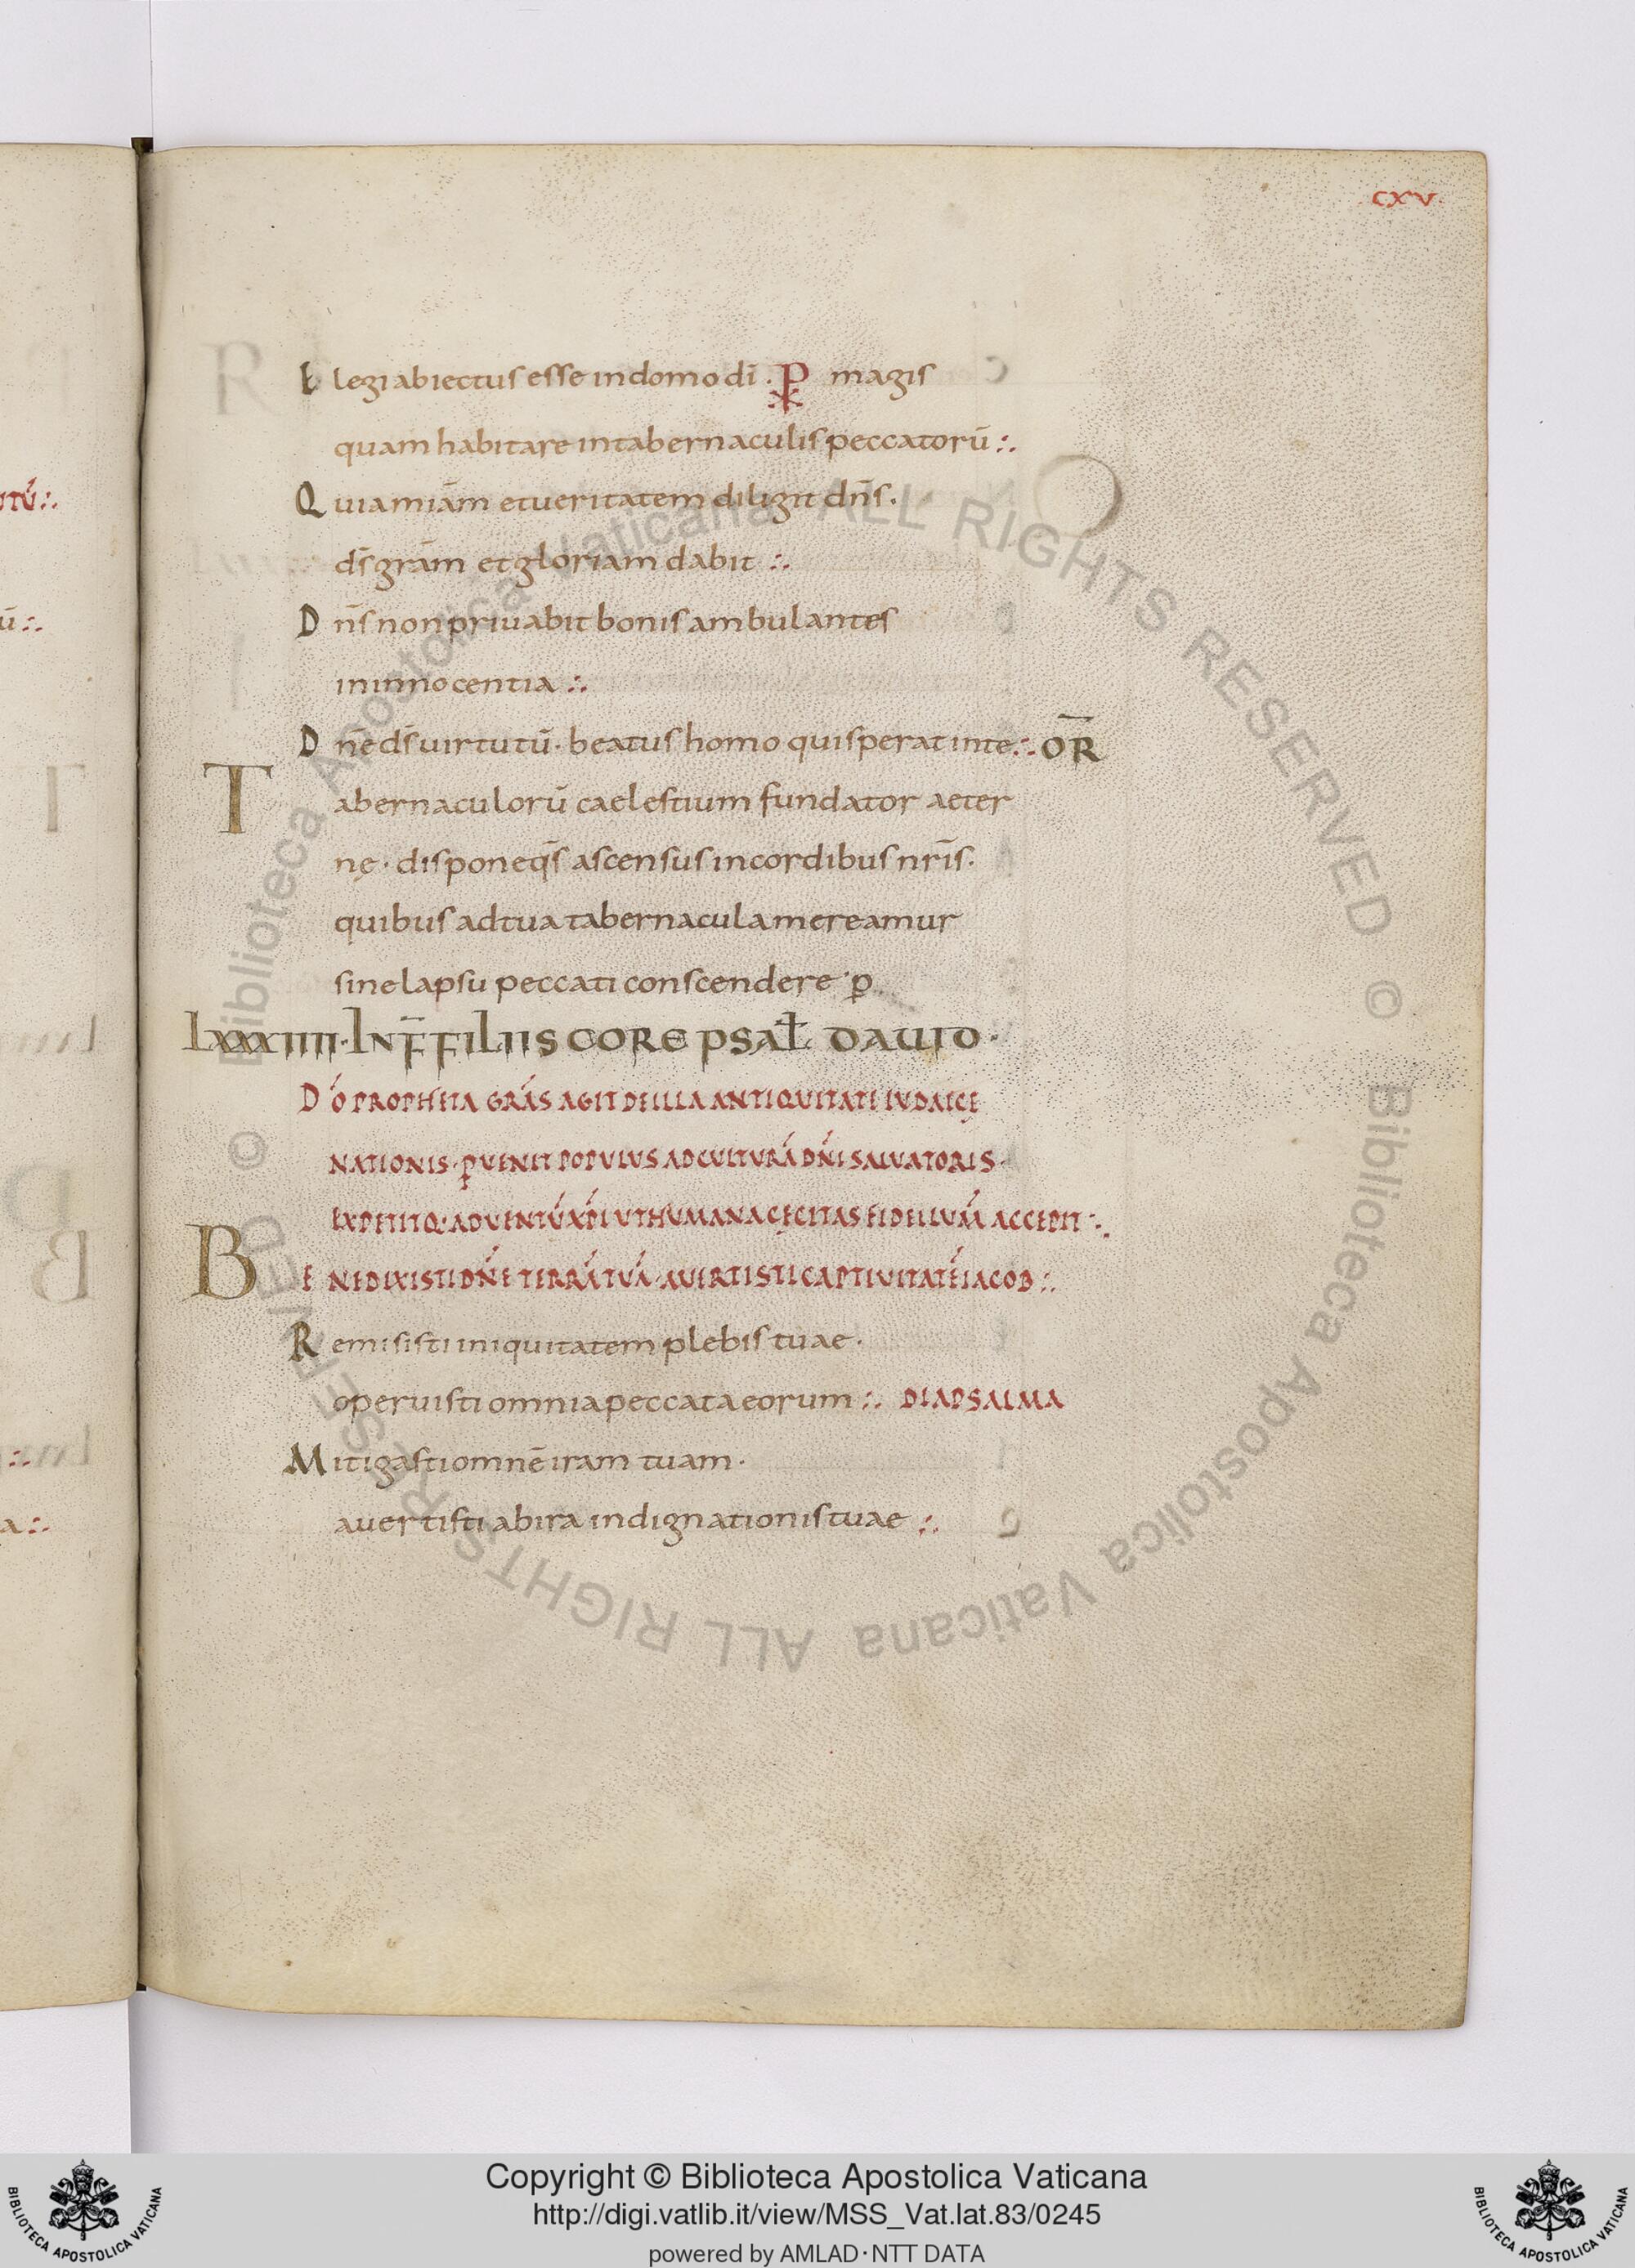 CXV.
Elegi abiectus esse in domo dī . ⳩ magis
quam habitare in tabernaculis peccatorū :.
Quia miām et ueritatem diligit dn̄s.
ds̄ grām et gloriam dabit :.
Dn̄s non priuabit bonis ambulantes
in innocentia :.
Dn̄e ds̄ uirtutū · beatus homo qui sperat in te :. OR̄
Tabernaculorū caelestium fundator aeter
nę · dispone qs̄ ascensus in cordibus nrīs.
quibus ad tua tabernacula mereamur
sine lapsu peccati conscendere · ꝑ
LXXXIIII · IN F̄ FILIIS CORE PSAŁ DAUID ·
DŌ PROPHETA GRĀS AGIT DE ILLA ANTIQUITATI IUDAICĘ
NATIONIS · ꝐUENIT POPULUS AD CULTURĀ DN̄I SALUATORIS ·
EXPETITQ· ADUENTŪ XP̄I UT HUMANA CĘCITAS FIDEI LUM̄ ACCEPIT :.
BENEDIXISTI DN̄E TERRĀ TUĀ · AUERTISTI CAPTIUITATĒ IACOB :.
Remisisti iniquitatem plebis tuae ·
operuisti omnia peccata eorum :. DIAPSALMA
Mitigasti omnē iram tuam ·
auertisti ab ira indignationis tuae :.
UTŪ :.
ū :.
a :.
© Biblioteca Apostolica Vaticana ALL RIGHTS RESERVED © Biblioteca Apostolica Vaticana ALL RIGHTS RESERVED
Copyright © Biblioteca Apostolica Vaticana
http://digi.vatlib.it/view/MSS_Vat.lat.83/0245
powered by AMLAD·NTT DATA
BIBLIOTECA APOSTOLICA VATICANA
BIBLIOTECA APOSTOLICA VATICANA